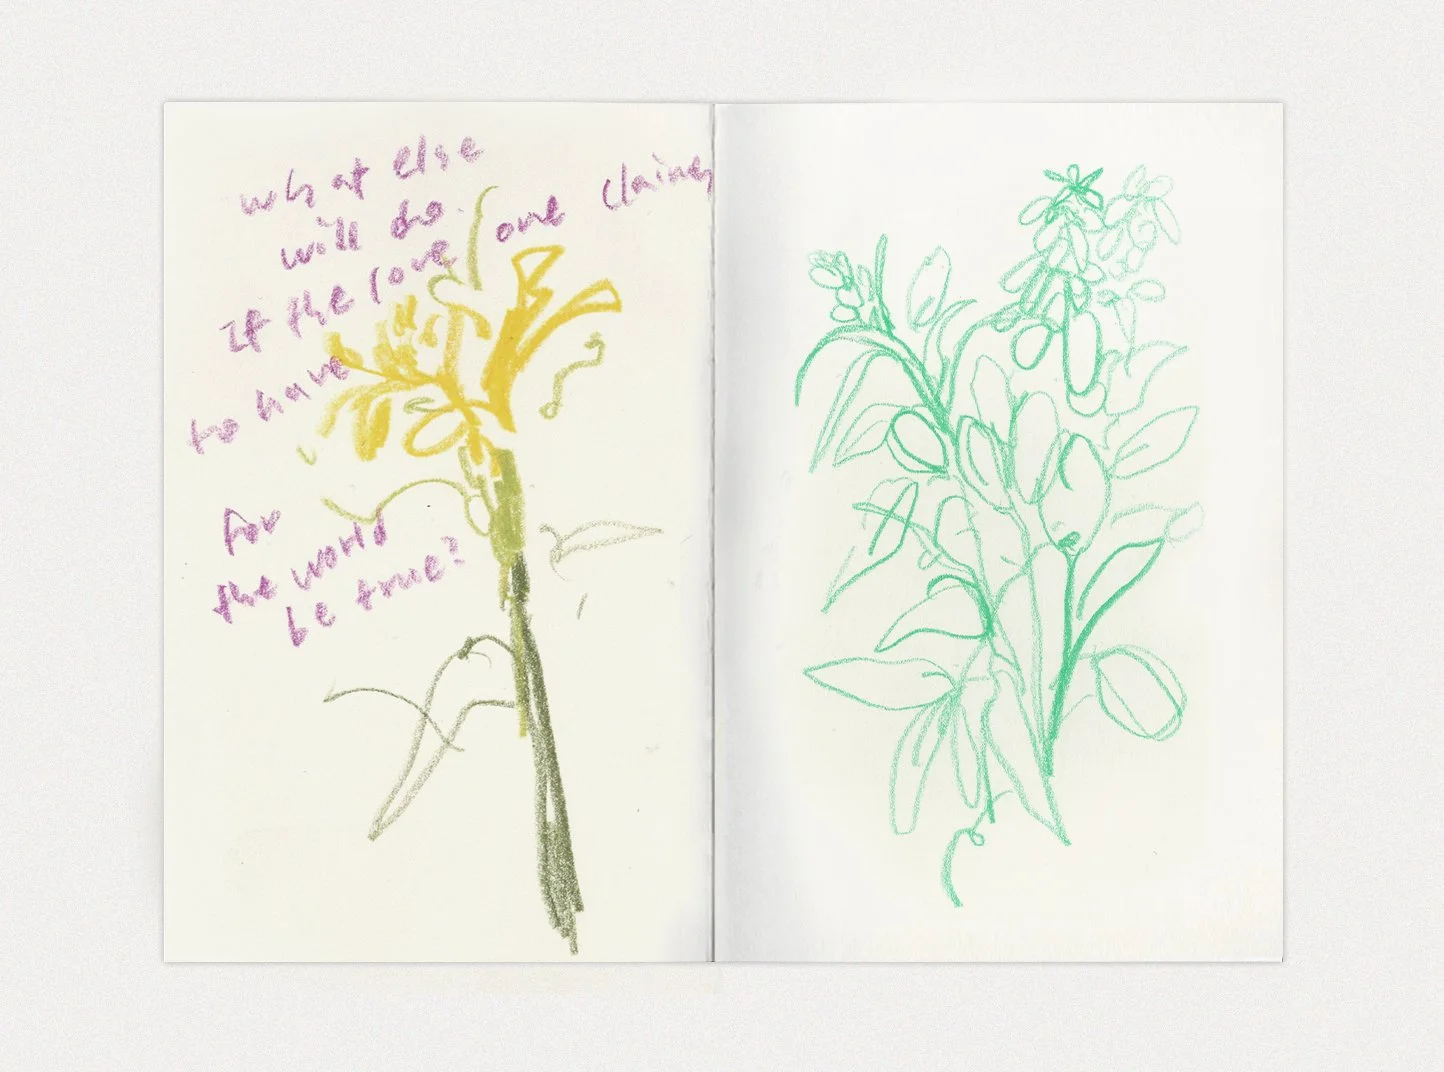 what else
will do
If the love one claims
to have
for
the world
be true?